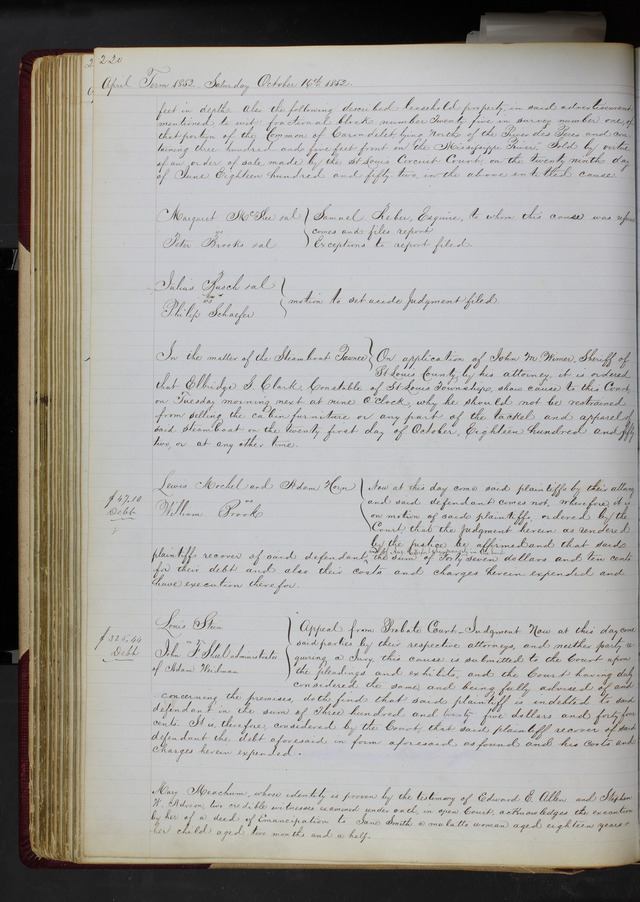 220
April Term 1852. Saturday October 16th 1852.
feet in depth. Also the following described leasehold property in said advertisement
mentioned to wit: fractional block number Twenty five in survey number one, of
that portion of the Common of Carondelet lying North of the River des Peres and con
taining three hundred and five feet front on the Mississippi River. Sold by virtue
of an order of sale made by the St Louis Circuit Court, on the twenty ninth day
of June Eighteen hundred and fifty two in the above entitled cause
Margaret McKee et al Samuel Reber, Esquire, to whom this cause was
vs comes and files report
Peter Brooks et al Exceptions to report filed
Julius Rusch et al
vs motion to set aside Judgment filed
Philip Schaefer
In the matter of the Steamboat On application of John M Wimer, Sheriff of
St Louis County, by his attorney, it is ordered
that Elbridge G. Clark, Constable of St Louis Township, show cause to this Court
on Tuesday morning next at nine O'Clock, why he should not be restrained
from selling the cabin furniture or any part of the tackel and apparel of
said Steamboat on the twenty first day of October, Eighteen hundred and fifty
two, or at any other time.
Lewis and Adam Horn Now at this day come said plaintiffs by their attorney
$47.10 vs and said defendant comes not, wherefore it is
Debt William Brook on motion of said plaintiffs, ordered by the
Court that the Judgment herein as rendered
by the justice be affirmed and that said
plaintiff recover of said defendant the sum of Forty seven dollars and ten cents
for their debt and also their costs and charges herein expended and
have execution therefor.
Louis Stein Appeal from Probate Court - Judgment Now at this day come
$325.44 vs said parties by their respective attorneys, and neither party re
Debt John F Stahl administrator quiring a Jury, this cause is submitted to the Court upon
of Adam the pleadings and exhibits, and the Court having duly
considered the same and being fully advised of and
concerning the premises, doth find that said plaintiff is indebted to said
defendant in the sum of Three hundred and twenty five dollars and forty four
cents. It is, therefore, considered by the Court, that said plaintiff recover of said
defendant the debt aforesaid in form aforesaid as found and his costs and
charges herein expended.
Mary Meachum, whose identity is proven by the testimony of Edward E. Allen and Stephen
W. two credible witnesses examined under oath, in open Court, acknowledges the execution
by her of a deed of Emancipation to Jane Smith a mulatto woman aged eighteen years &
her child aged two months and a half.